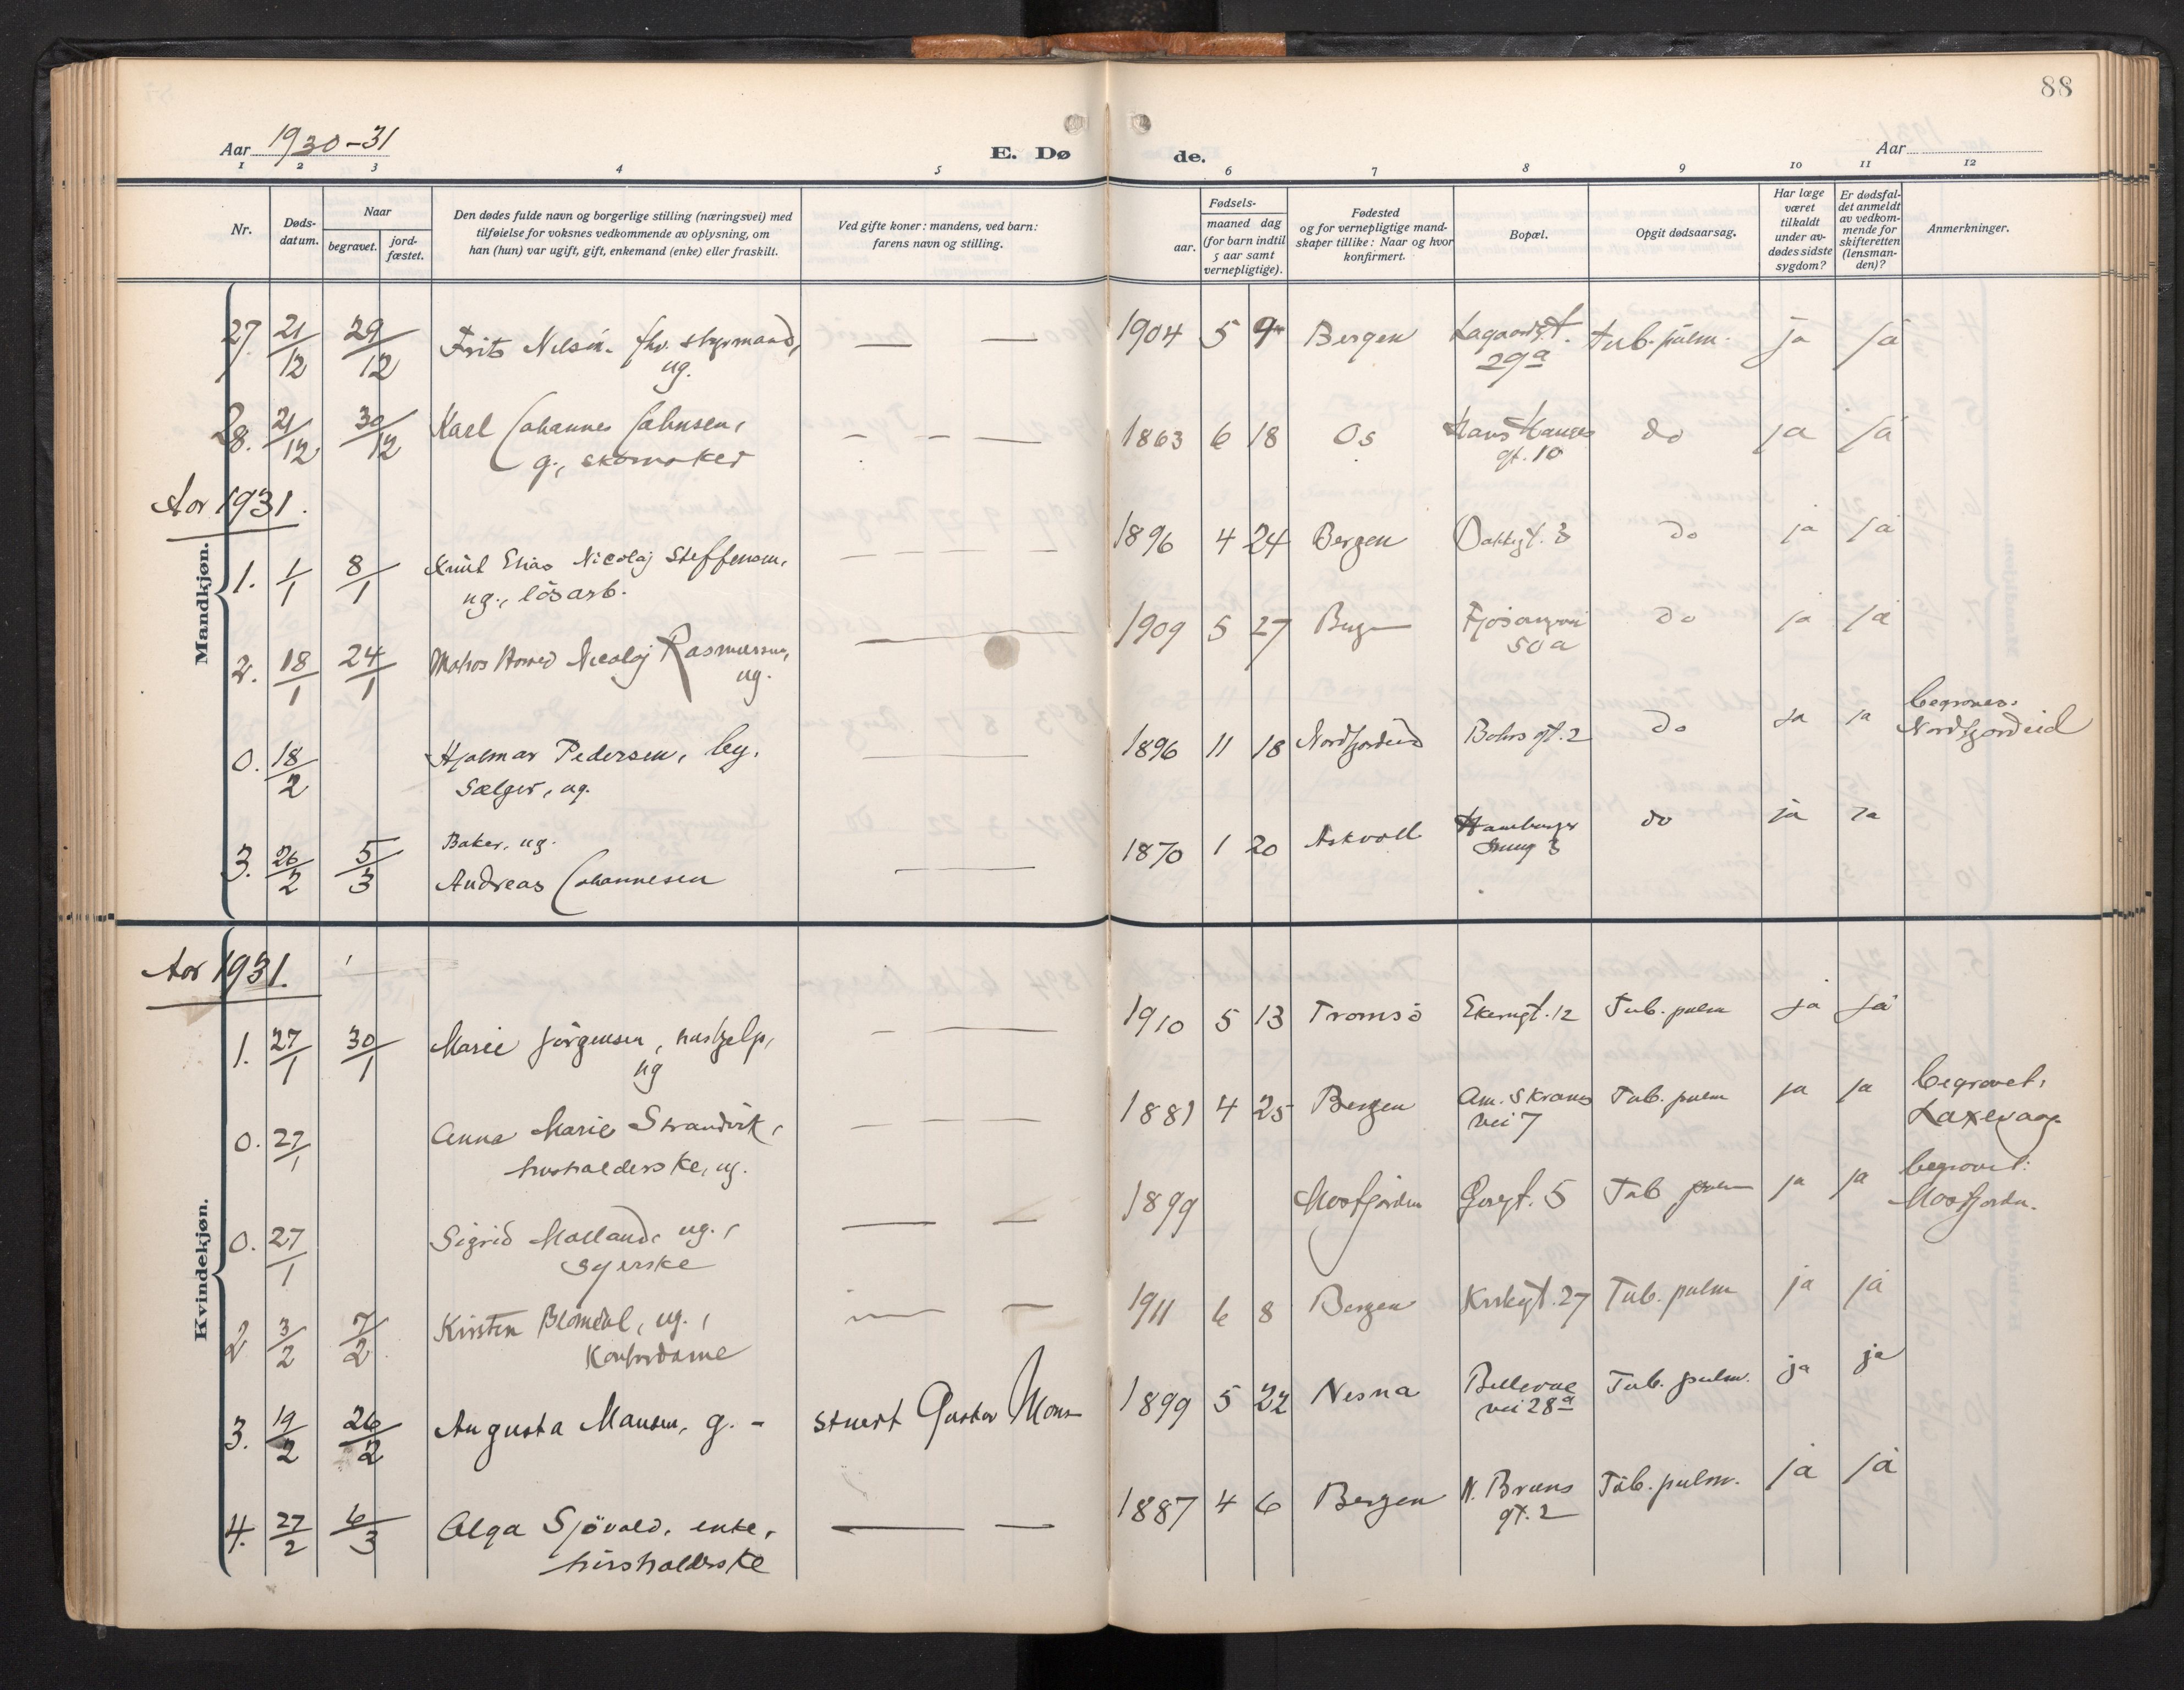 88
Aar 1930-31
E. Dø de.
Aar
1 2 3 4 5 6 7 8 9 10 11 12
Nr.
Døds-
datum.
Naar
begravet.
jord-
fæstet.
Den dødes fulde navn og borgerlige stilling (næringsvei) med
tilføielse for voksnes vedkommende av oplysning, om
han (hun) var ugift, gift, enkemand (enke) eller fraskilt.
Ved gifte koner: mandens, ved barn:
farens navn og stilling.
Fødsels-
aar.
maaned dag
(for barn indtil
5 aar samt
vernepligtige).
Fødested
og for vernepligtige mand-
skaper tillike: Naar og hvor
konfirmert.
Bopæl.
Opgit dødsaarsag.
Har læge
været
tilkaldt
under av-
dødes sidste
sygdom?
Er dødsfal-
det anmeldt
av vedkom-
mende for
skifteretten
(lensman-
den)?
Anmerkninger.
Mandkjøn.
27. 21/12 29/12 Frits Nilsen. fhv. styrmand, — — 1904 5 9 Bergen Lagaardsgt. tub. pulm. ja ja
ug. 29a
28. 21/12 30/12 Karl Johannes Johnsen, — — — 1863 6 18 Os Hans Hauges do ja ja
g., skomaker gt. 10
Aar 1931.
1. 1/1 8/1 Knut Elias Nicolaj Steffensen, 1896 4 24 Bergen 3 do ja ja
ug., løsarb.
2. 18/1 24/1 Matros Nicolaj Rasmussen, — 1909 5 27 Bergen Fjøsangvei do ja ja
ug. 50a
0. 18/2 Hjalmar Pedersen, — 1896 11 18 Nordfjordeid Bohrs gt. 2 do ja ja begraves:
Sælger, ug. Nordfjordeid
3. 26/2 5/3 Baker, ug. — 1870 1 20 Askvoll Hamburger do ja ja
Andreas Johannesen smug 3
Kvindekjøn.
Aar 1931.
1. 27/1 30/1 Marie Jörgensen, hushjelp, — — 1910 5 13 Tromsö Ekerngt. 12 Tub. pulm ja ja
ug
0. 27/1 Anna Marie Strandvik, — — 1881 4 25 Bergen Am. Skrams Tub. pulm ja ja begravet:
husholderske, ug. vei 7 Laxevaag.
0. 27/1 Sigrid Molland, ug., — — 1899 Mosfjorden 5 Tub pulm ja ja begravet:
syerske Mosfjorden.
2 3/2 7/2 Kirsten Blomdal, ug., — — 1911 6 8 Bergen Kirkegt. 27 Tub. pulm ja ja
Kontordame
3. 19/2 26/2 Augusta Monsen, g. - stuert Gustav Mons— 1899 5 22 Nesna Bellevue Tub. pulm. ja ja
vei 28a
4. 27/2 6/3 Olga Sjövold, enke, — — 1887 4 6 Bergen N. Bruns Tub. pulm. ja ja
husholderske gt. 2